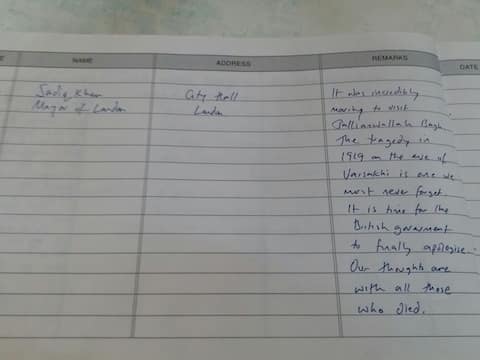 E NAME ADDRESS REMARKS DATE
Sadiq Khan
Mayor of London
City Hall
London
It was incredibly
moving to visit
Jallianwallah Bagh.
The tragedy in
1919 on the eve of
Vaisakhi is one we
must never forget.
It is time for the
British government
to finally apologise.
Our thoughts are
with all those
who died.